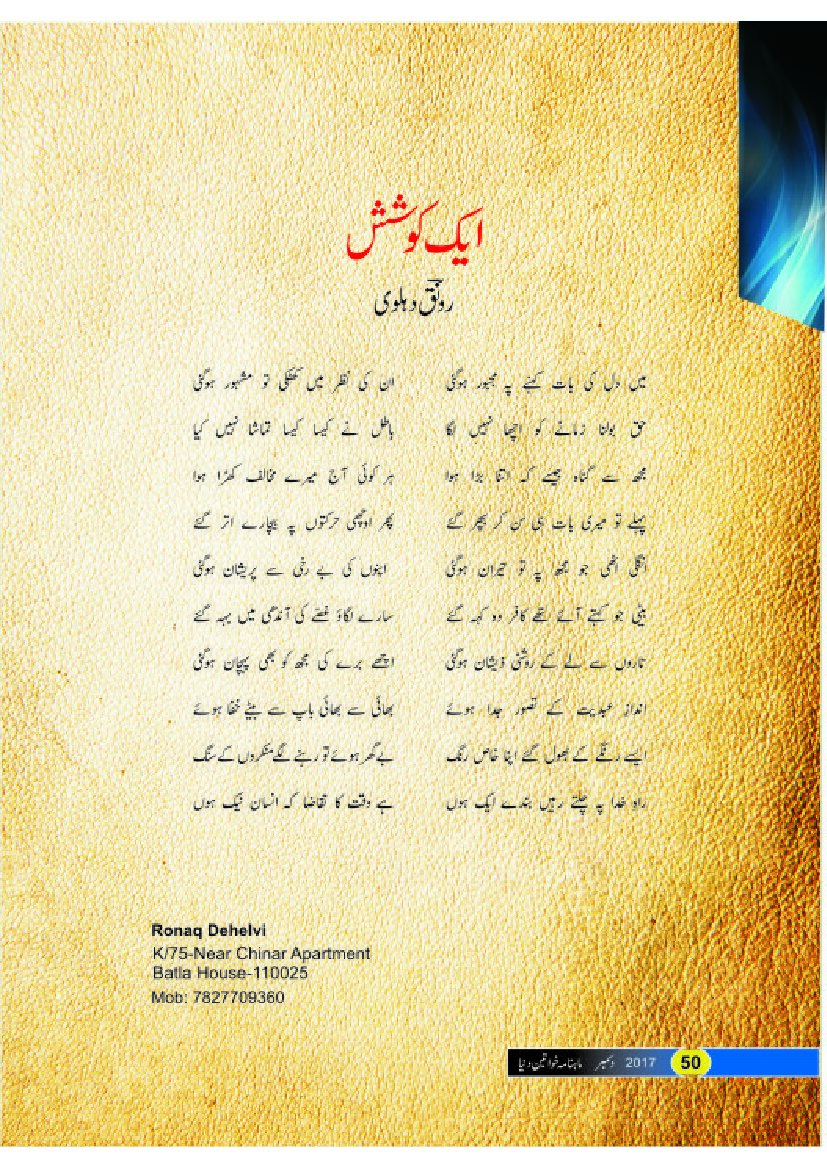 ایک کوشش
رونقؔ دہلوی
میں دل کی بات کہنے پہ مجبور ہوگئی ان کی نظر میں کھٹکی تو مشہور ہوگئی
حق بولنا زمانے کو اچھا نہیں لگا باطل نے کیسا کیسا تماشا نہیں کیا
مجھ سے گناہ جیسے کہ اتنا بڑا ہوا ہر کوئی آج میرے مخالف کھڑا ہوا
پہلے تو میری بات ہی سن کر بپھر گئے پھر اوچھی حرکتوں پہ بیچارے اتر گئے
انگلی اٹھی جو مجھ پہ تو حیران ہوگئی اپنوں کی بے رخی سے پریشان ہوگئی
بیٹی جو کہتے آئے تھے کافر وہ کہہ گئے سارے لگاؤ غصے کی آندھی میں بہہ گئے
تاروں سے لے کے روشنی ذیشان ہوگئی اچھے برے کی مجھ کو بھی پہچان ہوگئی
انداز عبدیت کے تصور جدا ہوئے بھائی سے بھائی باپ سے بیٹے خفا ہوئے
ایسے رنگے کے بھول گئے اپنا خاص رنگ بے گھر ہوئے تو رہنے لگے منکروں کے سنگ
راہِ خدا پہ چلتے رہیں بندے ایک ہوں ہے وقت کا تقاضا کہ انسان نیک ہوں
Ronaq Dehelvi
K/75-Near Chinar Apartment
Batla House-110025
Mob: 7827709360
ماہنامہ خواتین دنیا دسمبر 2017 50